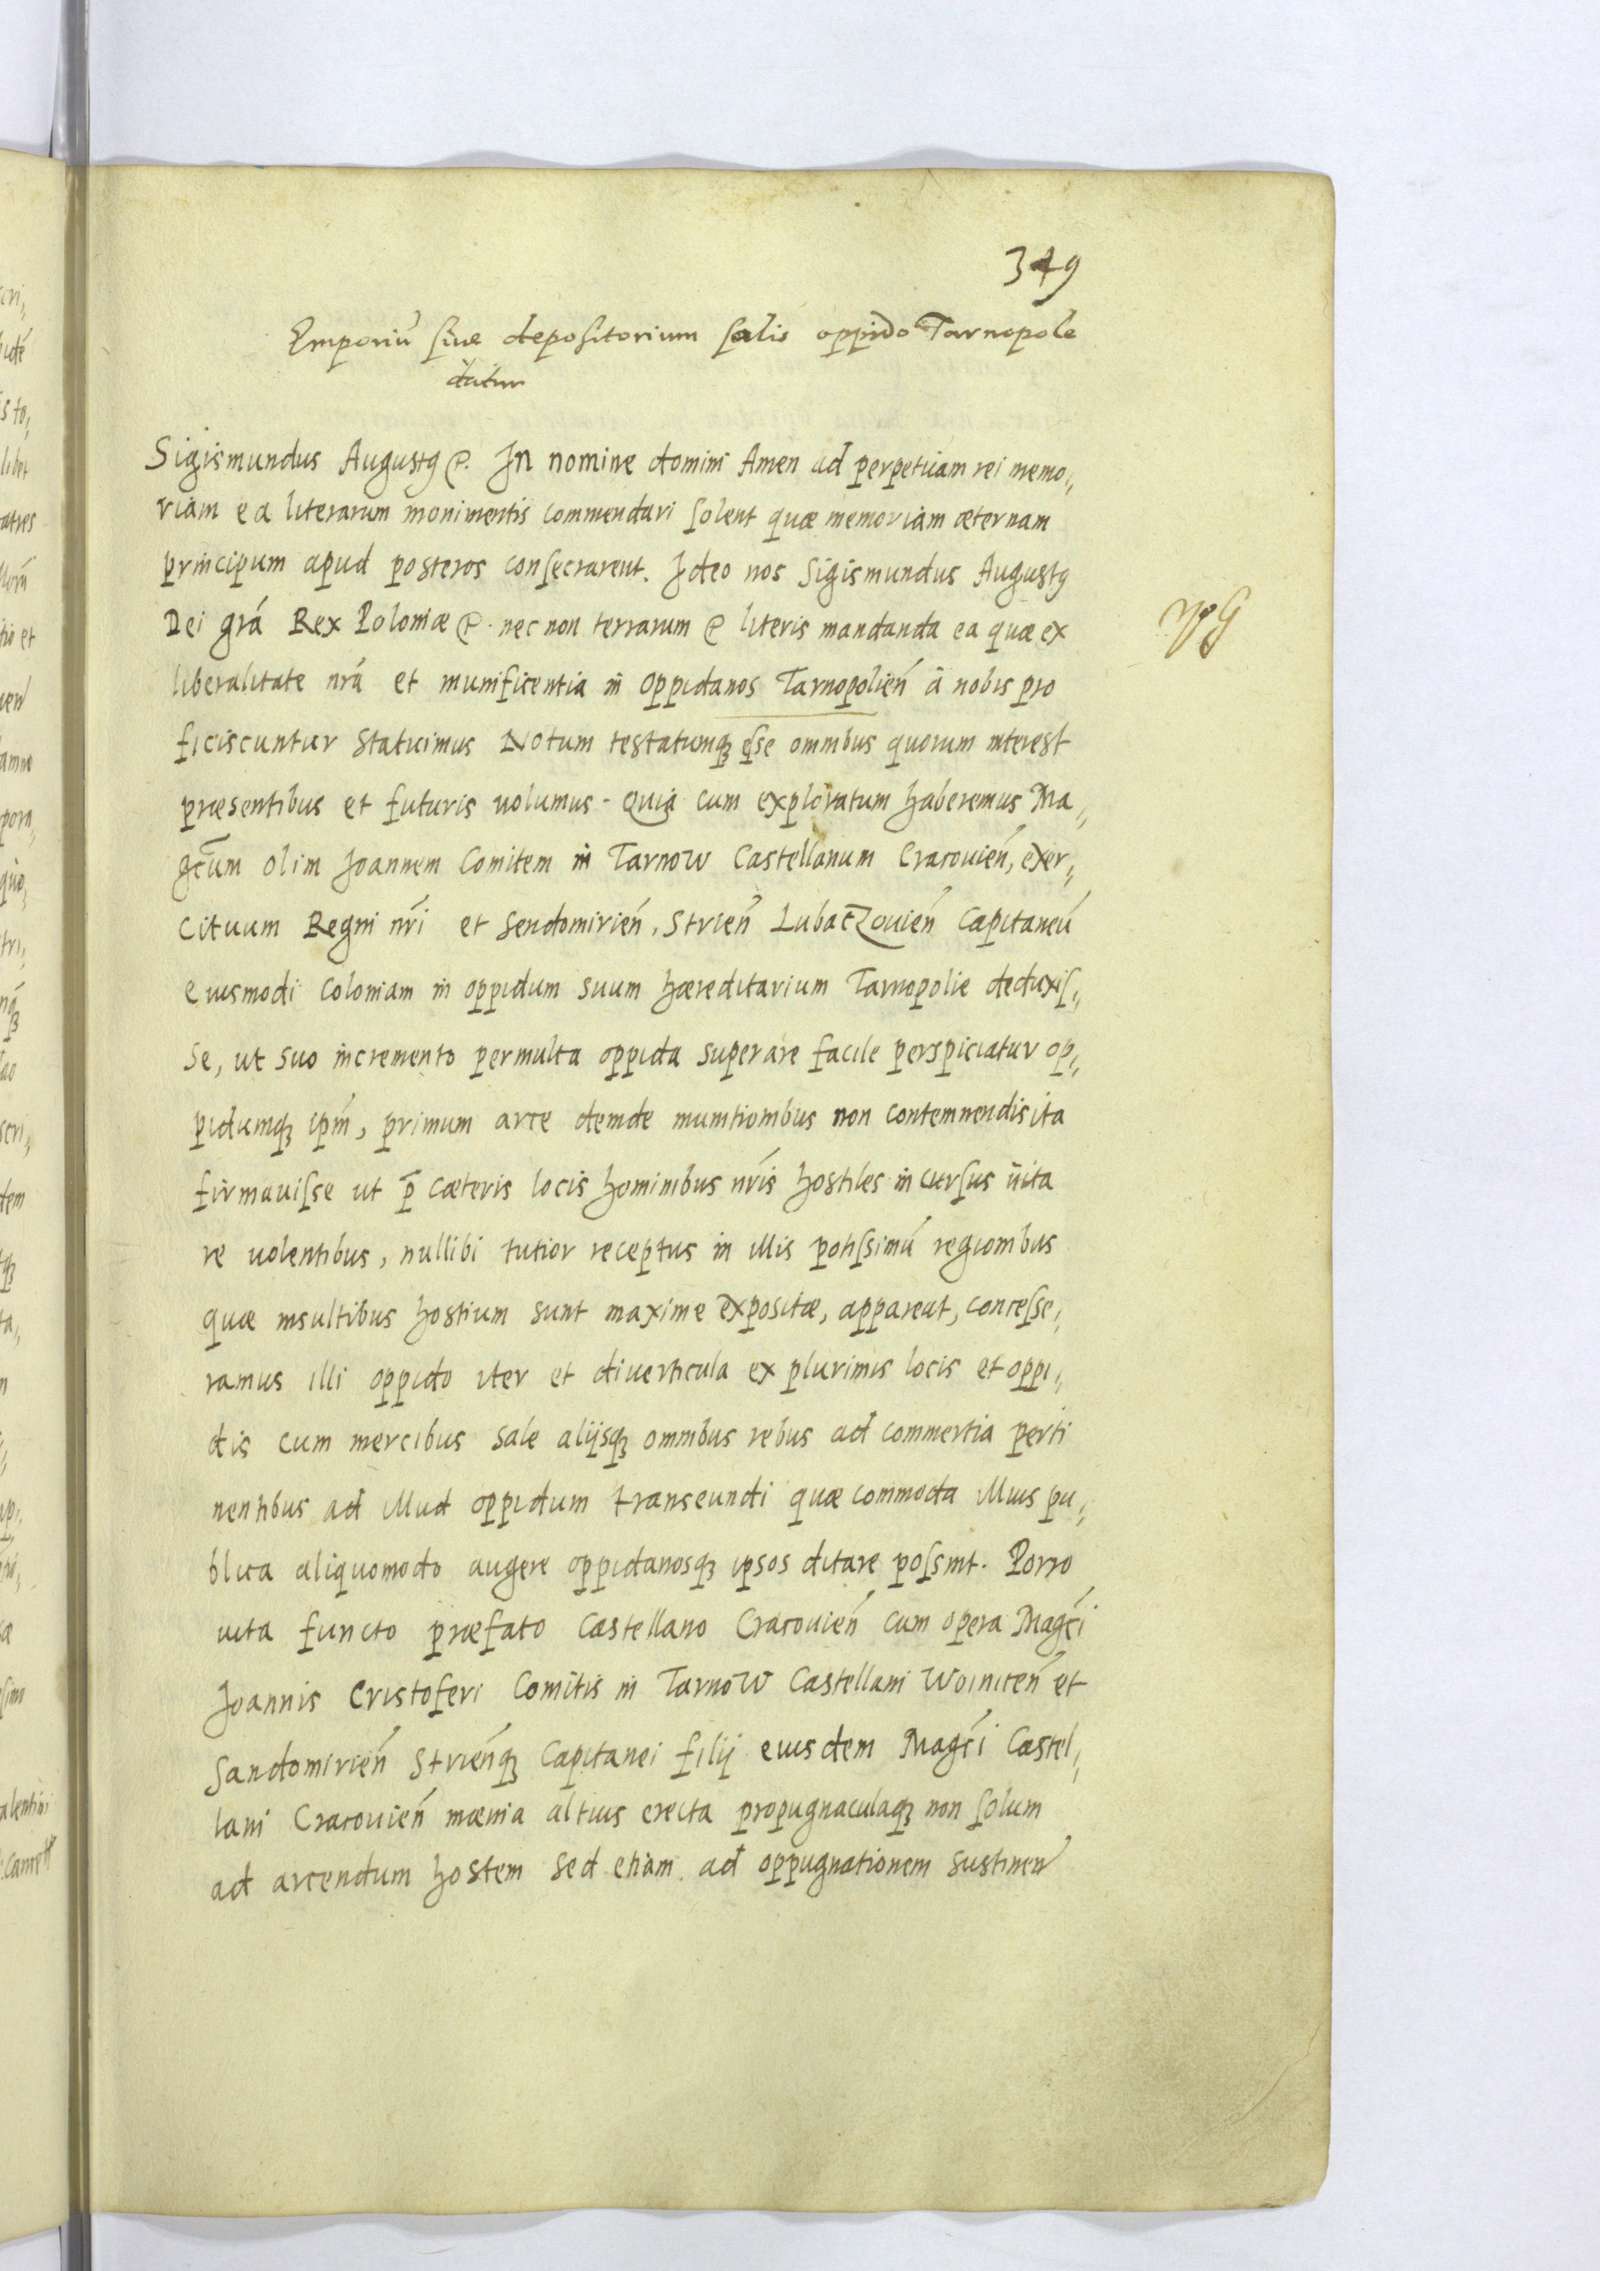 349
Emporiũ siue depositorium salis oppido Tarnopole
datur
Sigismundus Augustꝯ &c. In nomine domini Amen ad perpetuam rei memo„
riam ea literarum monimentis commendari solent quæ memoriam æternam
principum apud posteros consecrarent. Ideo nos Sigismundus Augustꝯ
Dei grã Rex Poloniæ &c. nec non terrarum &c literis mandanda ea quæ ex
liberalitate nrã et munificentia in oppidanos Tarnopolień à nobis pro
ficiscuntur statuimus Notum testatumqꝫ esse omnibus quorum interest
præsentibus et futuris uolumus - Quia cum exploratum haberemus Ma„
gcũm olim Joannem Comitem in Tarnow Castellanum Cracouień, exer„
cituum Regni nři et Sendomirień, Strień Lubaczouień Capitaneũ
eiusmodi coloniam in oppidum suum hæreditarium Tarnopolie deduxis„
se, ut suo incremento permulta oppida superare facile perspiciatur op„
pidumqꝫ ipm̃, primum arce deinde munitionibus non contemnendis ita
firmauisse ut p̄ cæteris locis hominibus nřis hostiles incursus uita
re uolentibus, nullibi tutior receptus in illis potissimũ regionibus
quæ insultibus hostium sunt maxime expositæ, appareat, concesse„
ramus illi oppido iter et diuerticula ex plurimis locis et oppi„
dis cum mercibus sale alijsqꝫ omnibus rebus ad commertia perti
nentibus ad illud oppidum transeundi quæ commoda illius pu„
blica aliquomodo augere oppidanosqꝫ ipsos ditare possint. Porro
uita functo præfato Castellano Cracouień cum opera Magci
Joannis Cristoferi Comitis in Tarnow Castellani Woiniceń et
Sandomirień Strieńqꝫ Capitanei filij eiusdem Magci Castel„
lani Cracouień mœnia altius erecta propugnaculaqꝫ non solum
ad arcendum hostem sed etiam ad oppugnationem sustinen